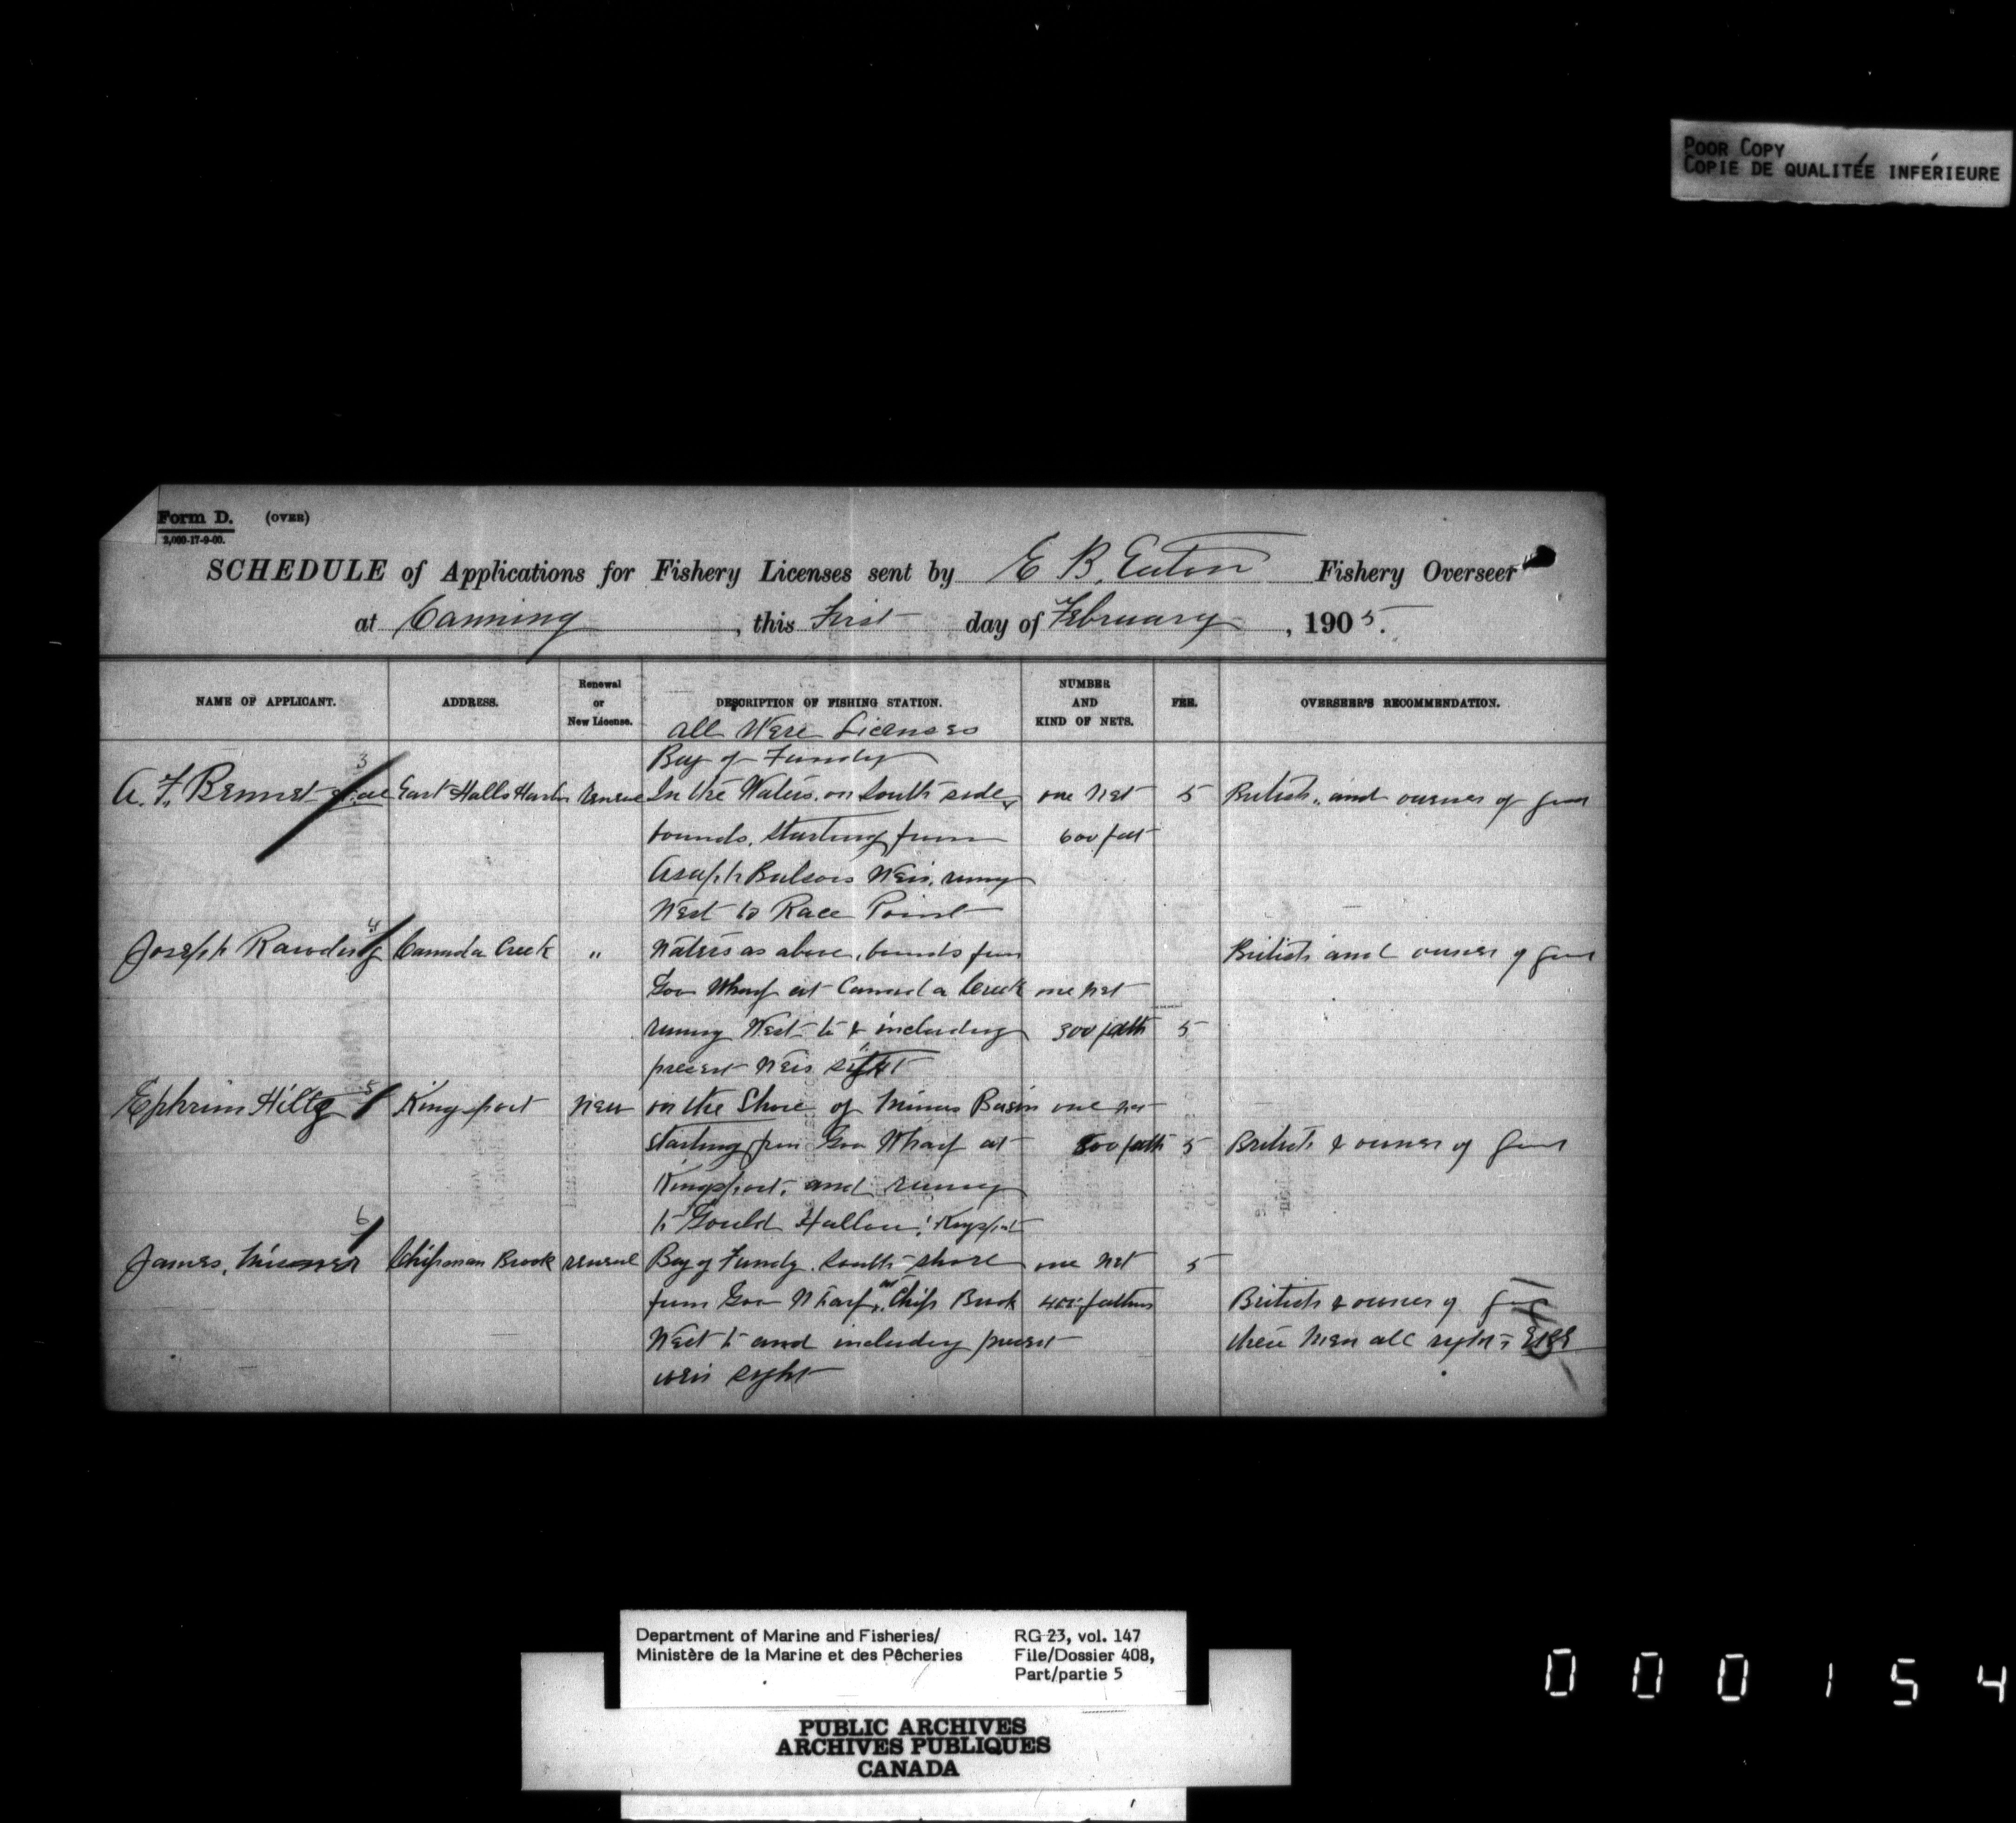 POOR COPY
COPIE DE QUALITÉE INFÉRIEURE
Form D. (OVER)
2,000-17-9-00.
SCHEDULE of Applications for Fishery Licenses sent by E B. Eaton Fishery Overseer
at Canning, this First day of February, 1905.
NAME OF APPLICANT. ADDRESS. Renewal or New License. DESCRIPTION OF FISHING STATION. NUMBER AND KIND OF NETS. FEE. OVERSEER'S RECOMMENDATION.
all Were Licenses
Bay of Fundy
3
A. F. Bennet et al East Halls Harbr In the Waters on South side one net 5 British and owner of
bounds, starting from 600 feet
Asaph Weir, runing
West to Race Point
4
Joseph Rawding Canada Creek " Waters as above, bounds from British and owner of
Gov Wharf at Canada Creek one net
runing West to & including 300 fath 5
present Weir
5
Ephrim Hiltz Kingsport new on the Shore of Minus Basin one net
starting from Gov Wharf at fath 5 British & owner of
Kingsport, and runing
to Gould Hallow, Kingsport
6
James Misener Chipman Brook renewl Bay of Fundy South shore one net 5
from Gov Wharf at Chip Brook 400 fathms British & owner of
West to and including present these men all right EBE
weir sight
Department of Marine and Fisheries/
Ministère de la Marine et des Pêcheries
RG 23, vol. 147
File/Dossier 408,
Part/partie 5
PUBLIC ARCHIVES
ARCHIVES PUBLIQUES
CANADA
000154